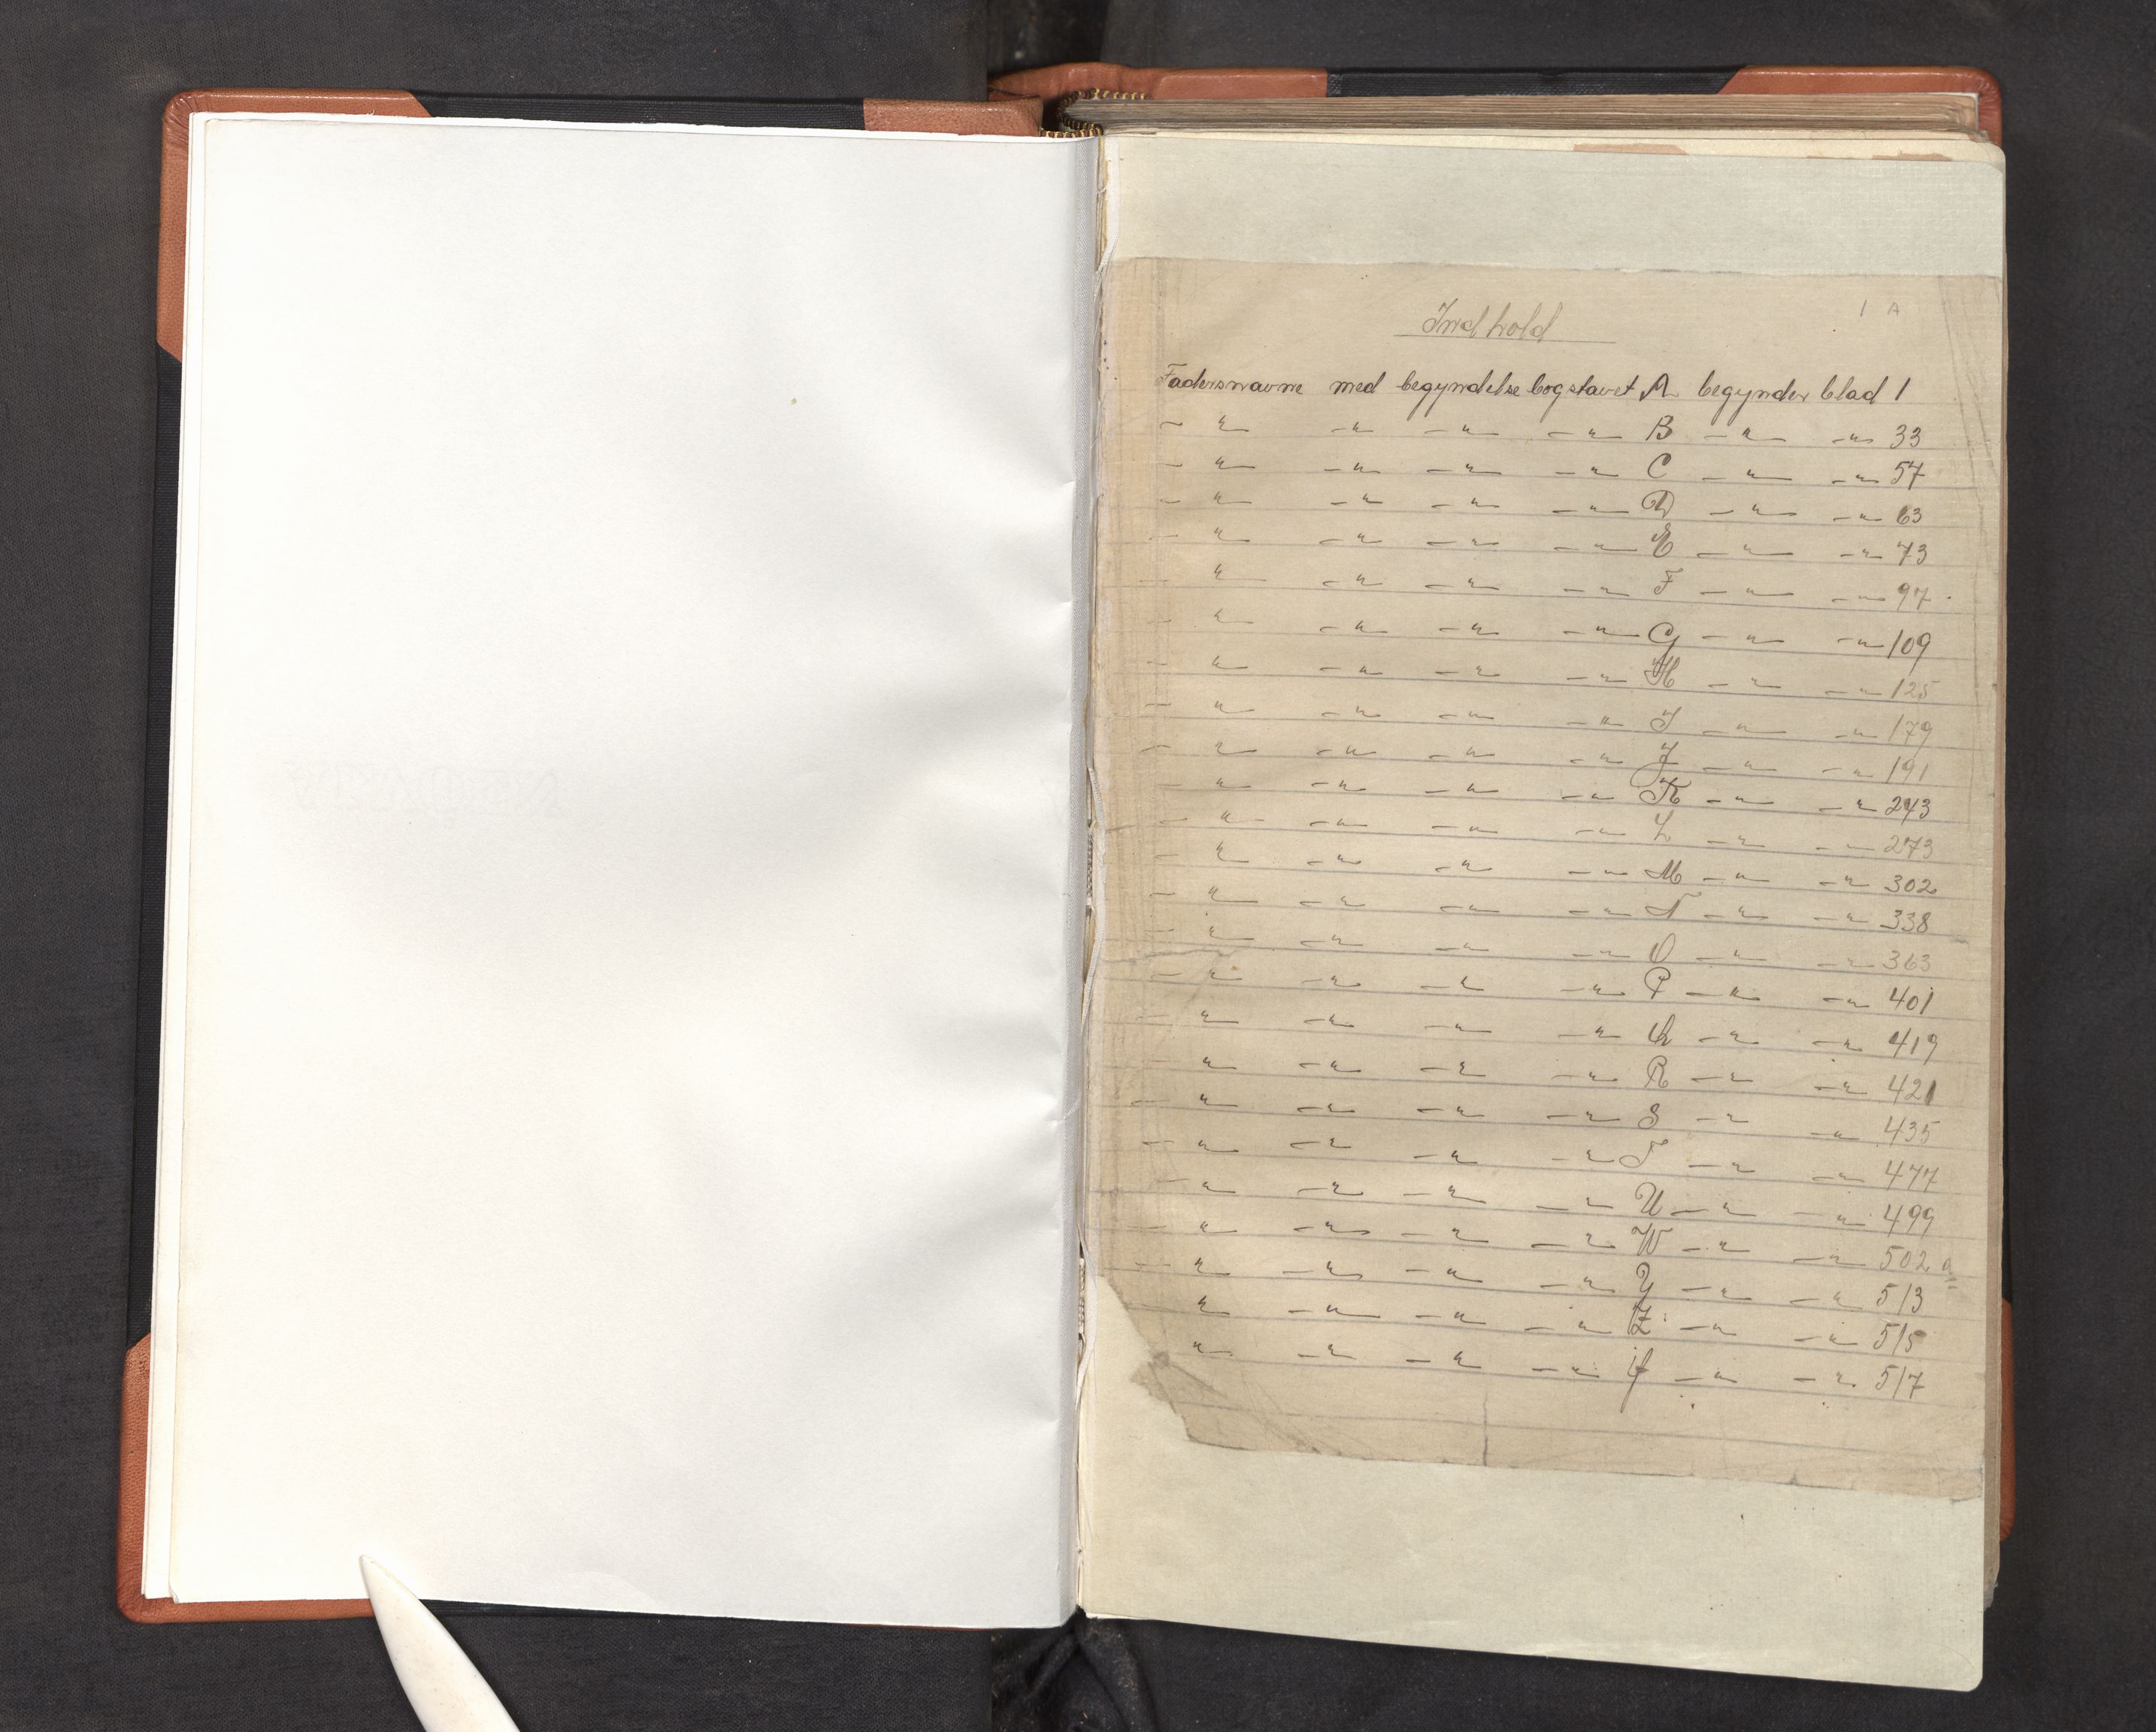 1 A
Indhold
Fadersnavne med begyndelse bogstavet A begynder blad 1
– " – – " – – " – – " – B – " – – " – 33
– " – – " – – " – – " – C – " – – " – 57
– " – – " – – " – – " – D – " – – " – 63
– " – – " – – " – – " – E – " – – " – 73
– " – – " – – " – – " – F – " – – " – 97
– " – – " – – " – – " – G – " – – " – 109
– " – – " – – " – – " – H – " – – " – 125
– " – – " – – " – – " – I – " – – " – 179
– " – – " – – " – – " – J – " – – " – 191
– " – – " – – " – – " – K – " – – " – 243
– " – – " – – " – – " – L – " – – " – 273
– " – – " – – " – – " – M – " – – " – 302
– " – – " – – " – – " – N – " – – " – 338
– " – – " – – " – – " – O – " – – " – 363
– " – – " – – " – – " – P – " – – " – 401
– " – – " – – " – – " – Q – " – – " – 419
– " – – " – – " – – " – R – " – – " – 421
– " – – " – – " – – " – S – " – – " – 435
– " – – " – – " – – " – T – " – – " – 477
– " – – " – – " – – " – U – " – – " – 499
– " – – " – – " – – " – W – " – – " – 502 a
– " – – " – – " – – " – Y – " – – " – 513
– " – – " – – " – – " – Z – " – – " – 515
– " – – " – – " – – " – – " – – " – 517